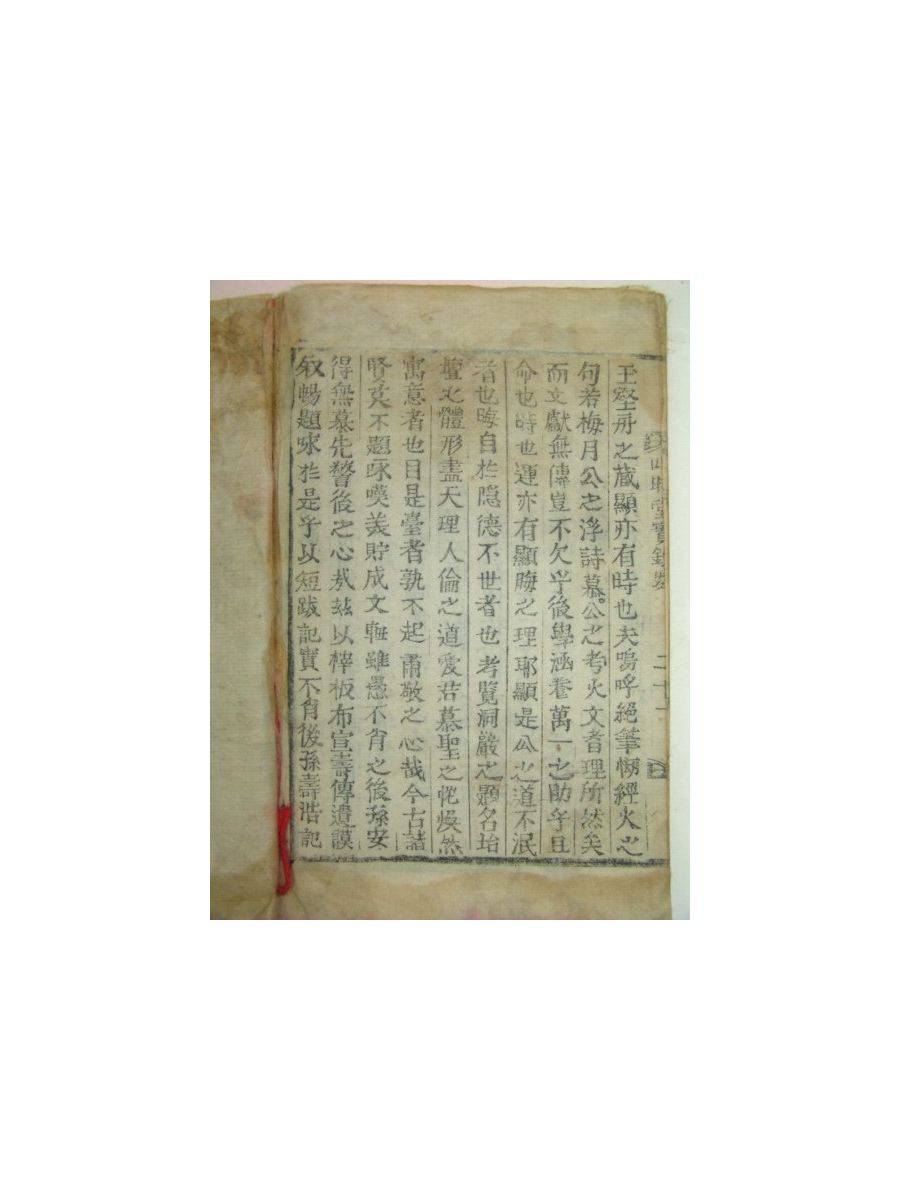 堂實錄
二十一
王堅舟之藏顯亦有時也夫嗚呼絕筆經火之
句若梅月公之浮詩慕公之考火文者理所然矣
而文獻無傳豈不欠乎後學涵養萬一之助乎且
命也時也運亦有顯晦之理耶顯是公之道不泯
者也晦自於隠德不世者也考覽洞巖之題名坮
壇之體形盡天理人倫之道愛若慕聖之忱煥然
寓意者也目是臺者孰不起肅敬之心哉今古諸
賢莫不題咏嘆羡貯成文軸雖愚不肖之後孫安
得無慕先警後之心哉玆以榟板布宣壽傳遺謨
敘暢題咏於是乎以短跋記實不肖後孫壽浩記